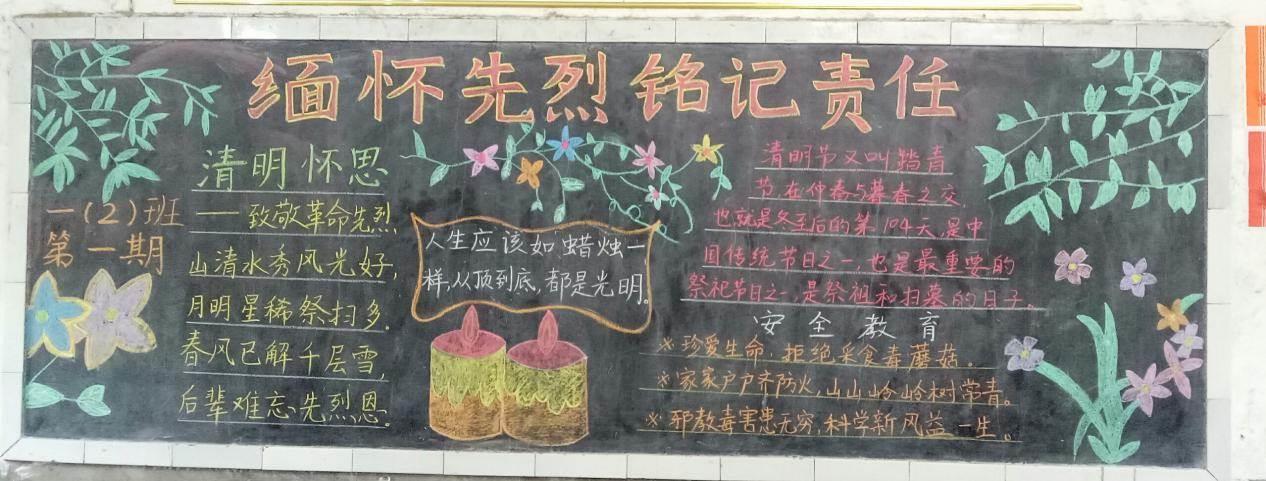 缅怀先烈 铭记责任
一(2)班
第一期
清明怀思
——致敬革命先烈
山清水秀风光好,
月明星稀祭扫多。
春风已解千层雪,
后辈难忘先烈恩。
人生应该如蜡烛一
样,从顶到底,都是光明。
清明节又叫踏青
节,在仲春与暮春之交,
也就是冬至后的第104天,是中
国传统节日之一,也是最重要的
祭祀节日之一,是祭祖和扫墓的日子。
安全教育
※珍爱生命,拒绝采食毒蘑菇。
※家家户户齐防火,山山岭岭树常青。
※邪教毒害患无穷,科学新风益一生。